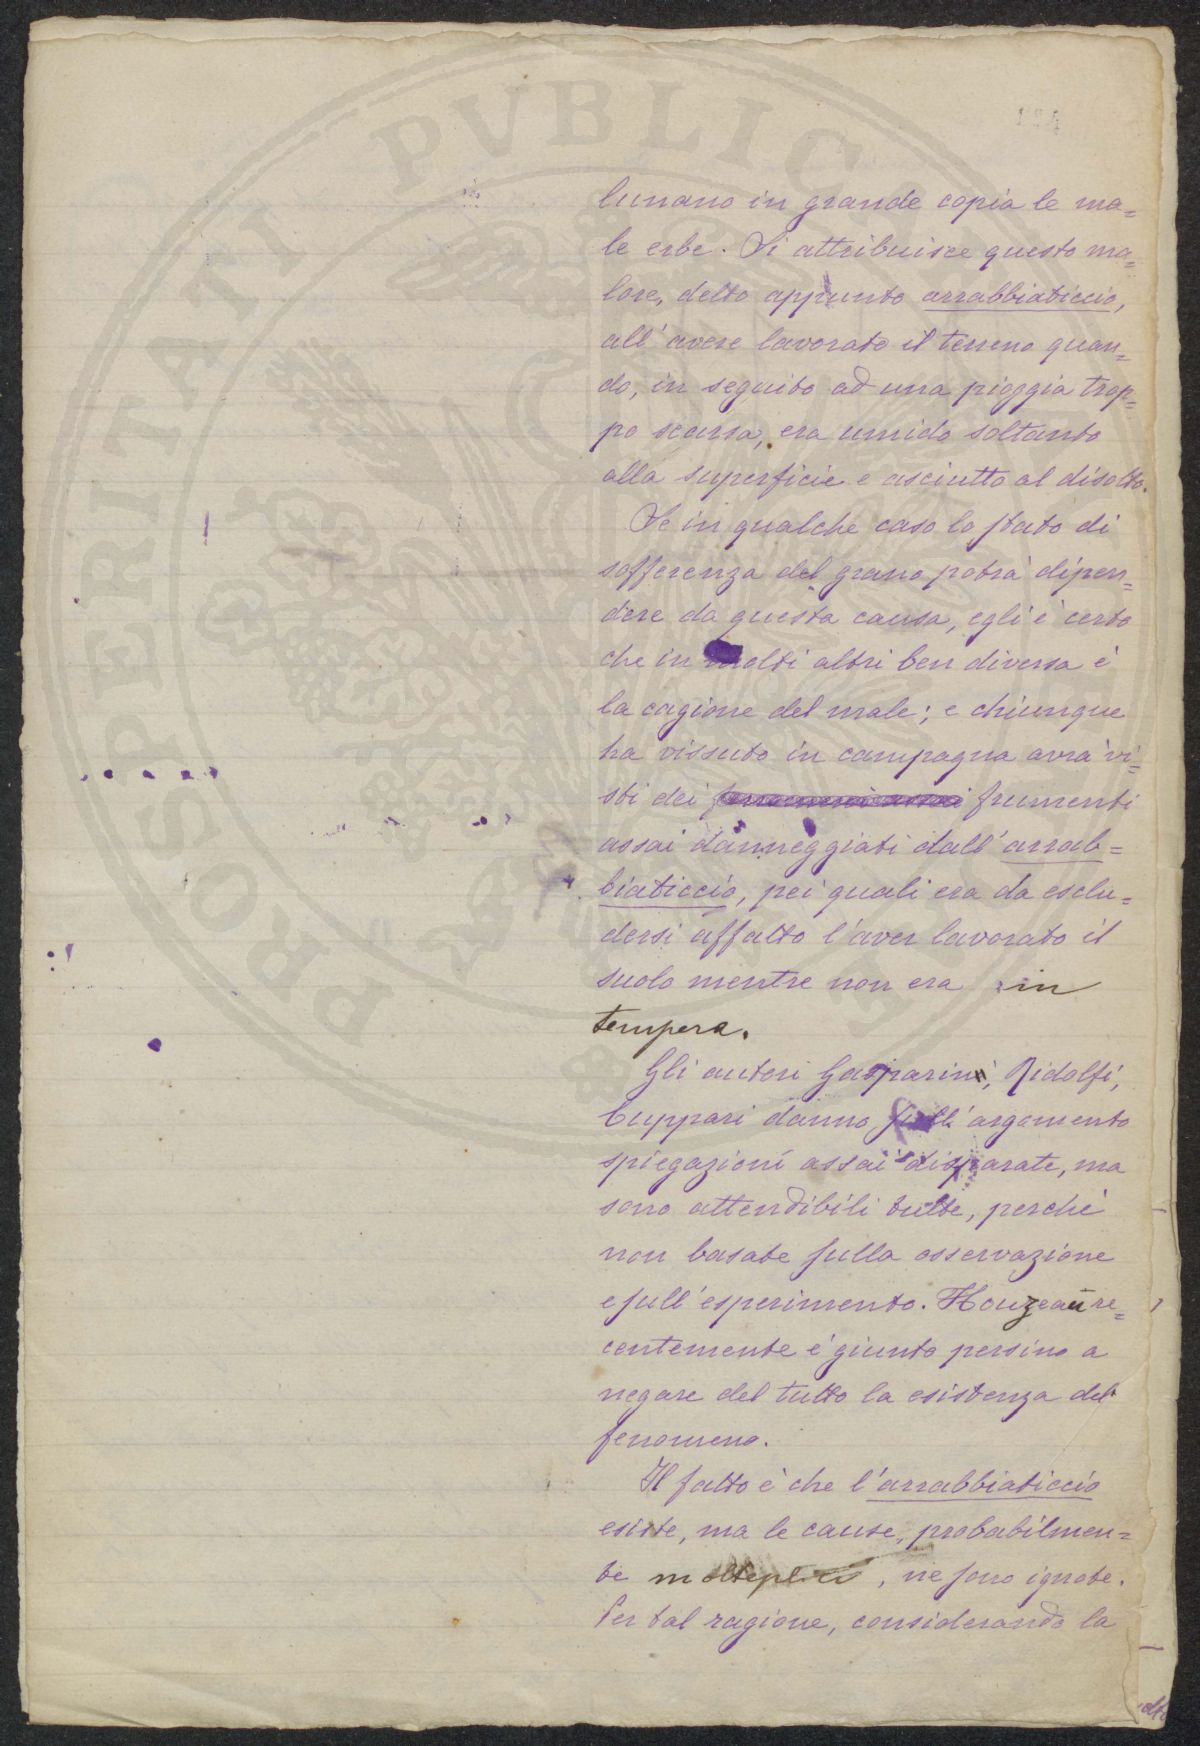 PROSPERITATI PVBLICAE
421
lunano in grande copia le ma=
le erbe. Si attribuisce questo ma=
lore, detto appunto arrabbiaticcio,
all'avere lavorato il terreno quan=
do, in seguito ad una pioggia trop=
po scarsa, era umido soltanto
alla superficie e asciutto al disotto.
Se in qualche caso lo stato di
sofferenza del grano potrà dipen=
dere da questa causa, egli è certo
che in molti altri ben diversa è
la cagione del male; e chiunque
ha vissuto in campagna avrà vi=
sti dei frumenti
assai danneggiati dall'arrab=
biaticcio, pei quali era da esclu=
dersi affatto l'aver lavorato il
suolo mentre non era in
tempera.
Gli autori Gasparin, Ridolfi,
Cuppari danno, sull'argomento
spiegazioni assai disparate, ma
sono attendibili tutte, perchè
non basate sulla osservazione
e sull'esperimento. Houzeau re=
centemente è giunto persino a
negare del tutto la esistenza del
fenomeno.
Il fatto è che l'arrabbiaticcio
esiste, ma le cause, probabilmen=
te molteplici, ne sono ignote.
Per tal ragione, considerando la